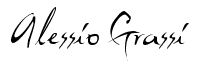 Alessio Grassi